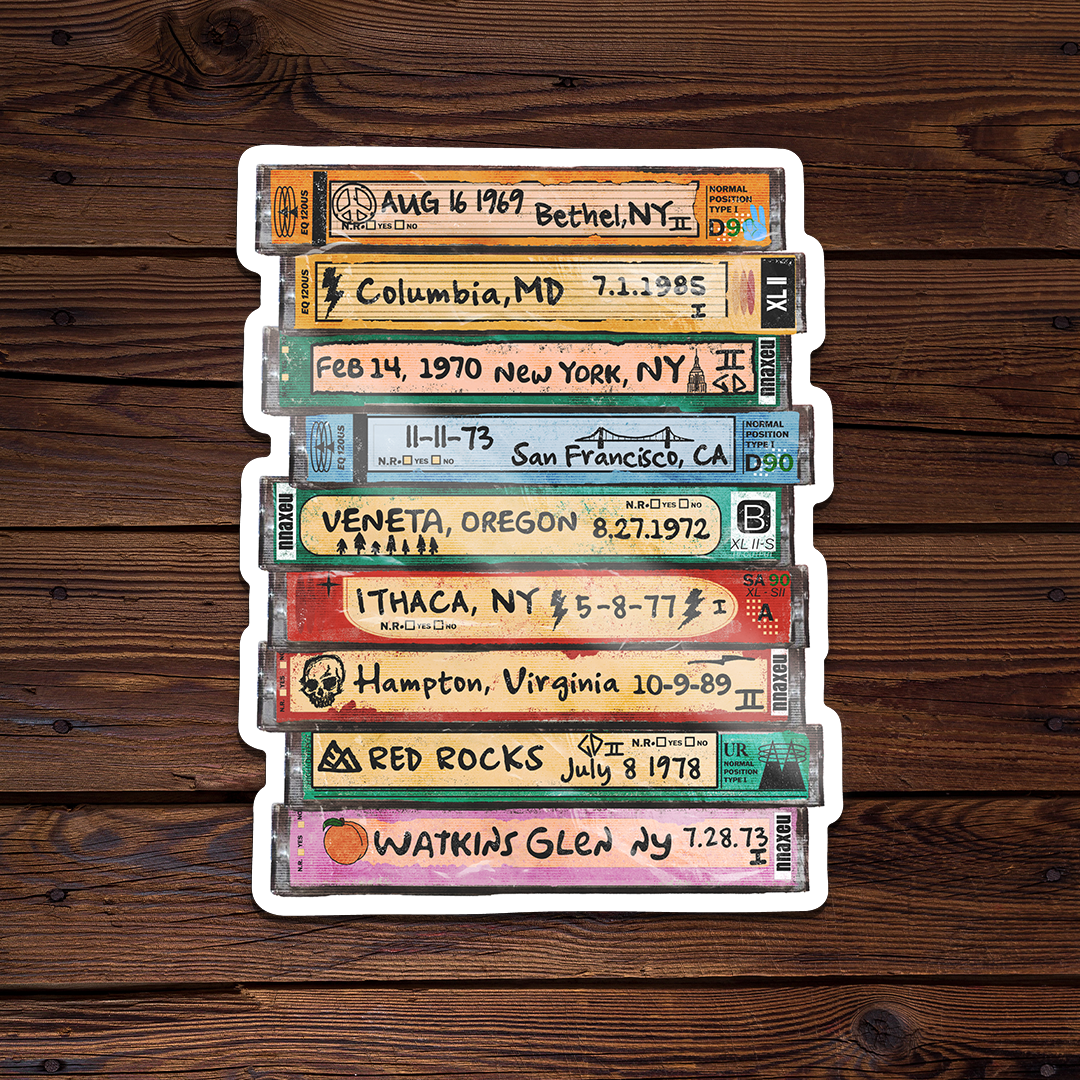 EQ 120US
AUG 16 1969 Bethel, NY II
N.R. YES NO
NORMAL
POSITION
TYPE I
D90
EQ 120US
Columbia, MD 7.1.1985 I
XL II
FEB 14, 1970 NEW YORK, NY II
nnaxeu
EQ 120US
11-11-73 San Francisco, CA
N.R. YES NO
NORMAL
POSITION
TYPE I
D90
nnaxeu
VENETA, OREGON 8.27.1972
N.R. YES NO
B
XL II-S
ITHACA, NY 5-8-77 I
N.R. YES NO
SA 90
XL - SII
A
N.R. YES
Hampton, Virginia 10-9-89 II
nnaxeu
RED ROCKS July 8 1978
II N.R. YES NO
UR
NORMAL
POSITION
TYPE I
N.R. YES NO
WATKINS GLEN NY 7.28.73
nnaxeu